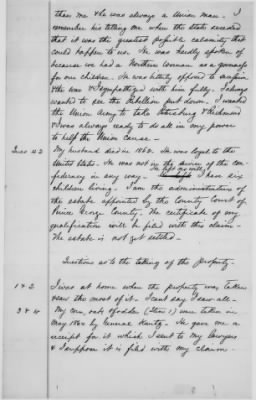 than me & he was always a Union man. I
remember his telling me when the state seceded
that it was the greatest possible calamity that
could happen to us. He was hardly spoken of
because we had a Northern woman as a governess
for our children. He was bitterly opposed to
& he was & I sympathized with him fully. I always
wanted to see the Rebellion put down. I wanted
the Union Army to take Petersburg & Richmond
& was always ready to do all in my power
to help the Union cause –
Ques 42 My husband died in 1862. He was loyal to the
United States. He was not in the service of the con-
federacy in any way. He left no will. I have six
children living. I am the administratrix of
the estate appointed by the County Court of
Prince George County. The certificate of my
qualification will be filed with this claim –
The estate is not yet settled –
Questions as to the taking of the property.
1 & 2 I was at home when the property was taken
& saw the most of it. I cant say I saw all –
3 & 4 My corn, oats & fodder (Item 1) were taken in
May 1864 by General Kautz. He gave me a
receipt for it which I sent to my lawyers
& I suppose it is filed with my claim –